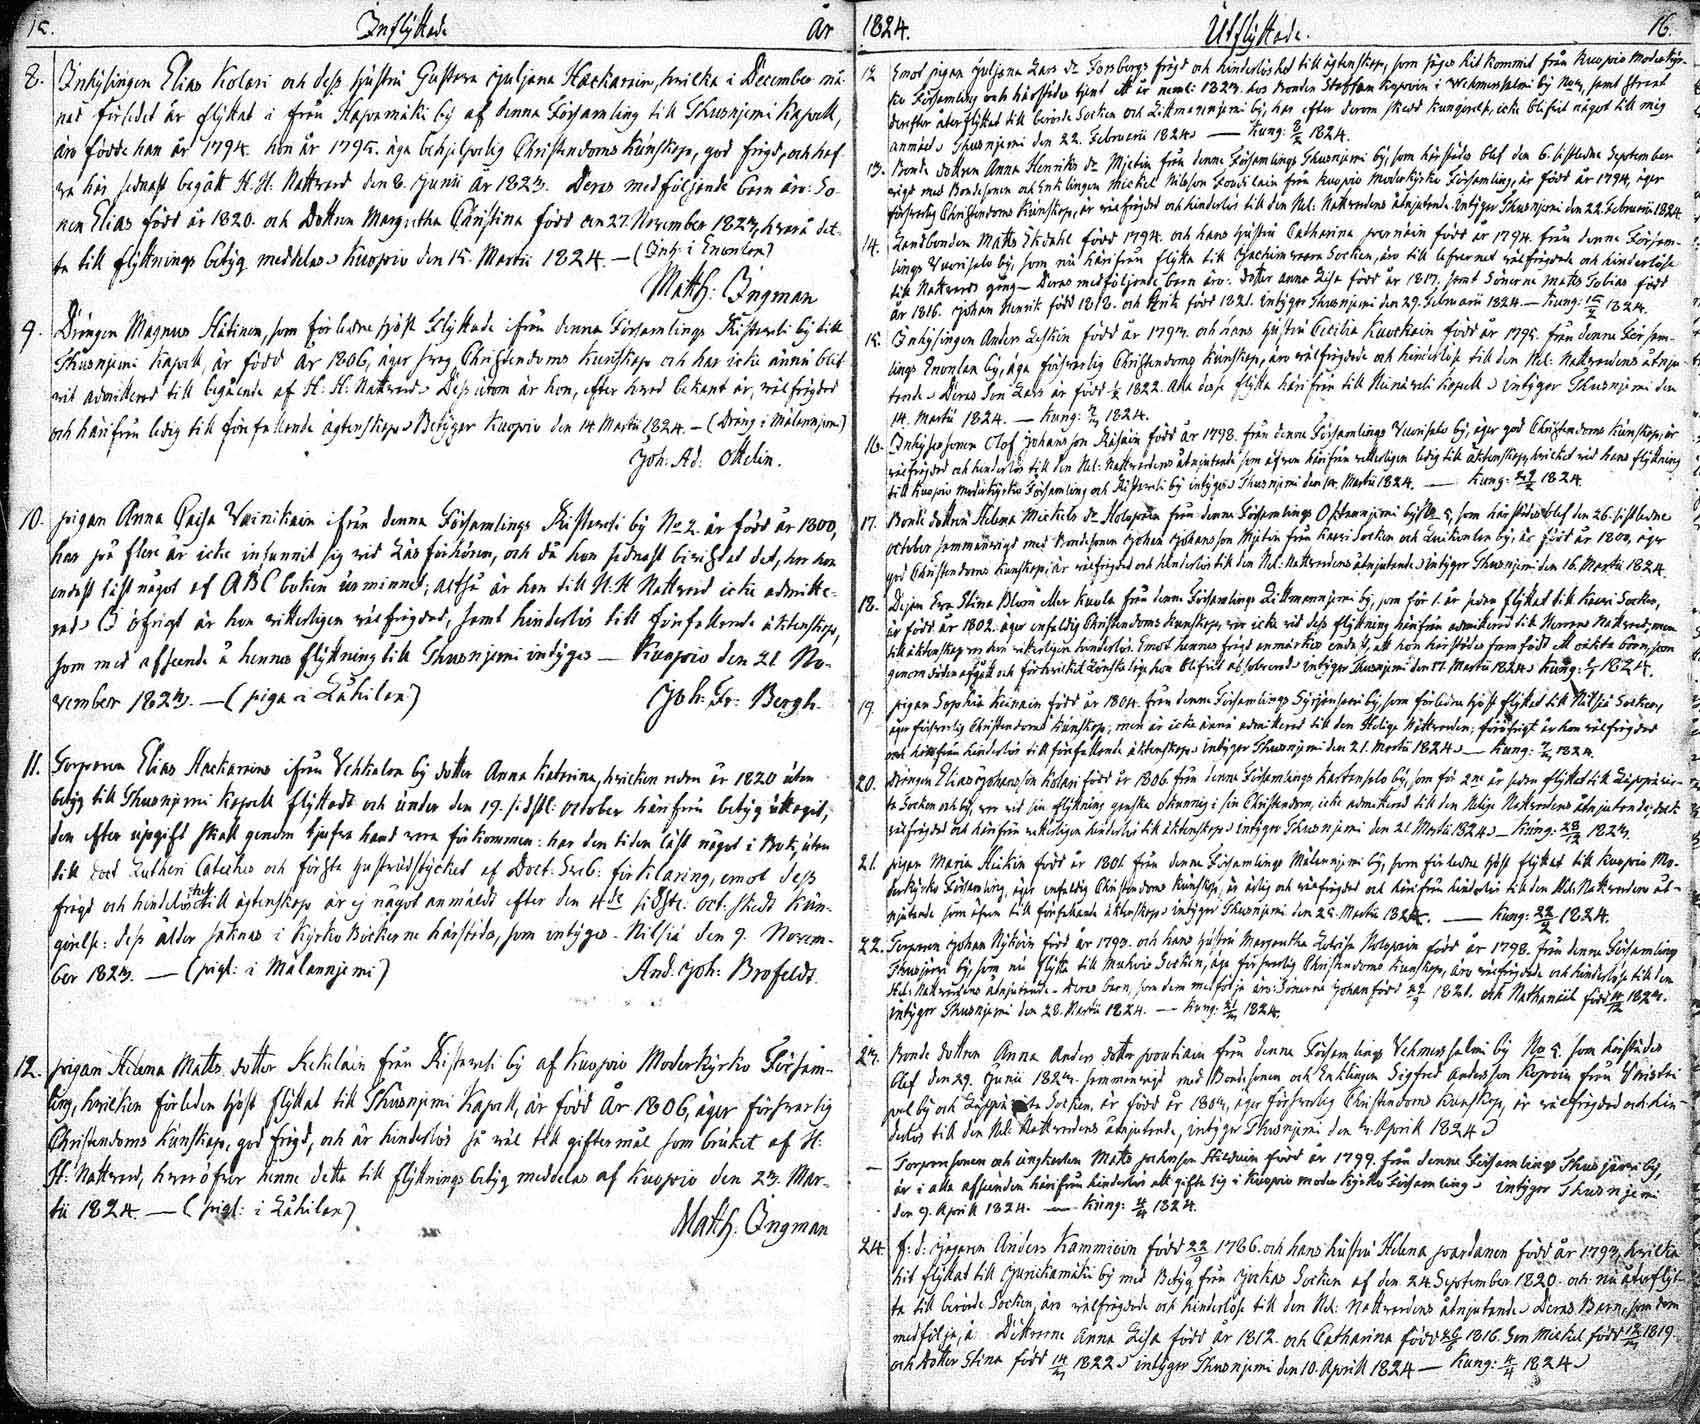 15. Inflyttade År
8. Inhysingen Elias Kolari och dess hustru Gustava Juliana Hackarain, hvilka i December må-
nad förledet år flyttat i från Haparmäki by af denna Församling till Thusnjemi Kapell,
äro födde han år 1794. hon år 1795. äga behjelpelig Christendoms kunskap, god frägd, och haf
va här sednast begått H: H: Nattvard den 8. Junii år 1823. Deras medföljande barn äro: So-
nen Elias född år 1820. och Dottren Margretha Christina född den 27. November 1823, hvarå det-
ta till flyttnings betyg meddelas. Kuopio den 15. Martii 1824. — (Inh: i Enonlax)
Matth: Ingman
9. Drängen Magnus Hätinen, som förledne höst flyttade ifrån denna Församlings Ristavesi by till
Thusnjemi Kapell, är född år 1806, äger svag Christendoms kunskap och har icke ännu blif
vit admitterad till begående af H: H: Nattvard. Dess utom är han, efter hvad bekant är, välfrägdad
och härifrån ledig till förefallande ägtenskap. Betygar Kuopio den 14 Martii 1824. — (Dräng i Målannjemi)
Joh: Ad: Ottelin.
10. pigan Anna Caisa Vainikain ifrån denna Församlings Ristavesi by No 2. är född år 1800,
har på flere år icke infunnit sig vid Läsförhören, och då hon sednast bevistat det, har hon
endast läst något af ABC boken ur minnet; altså är hon till H: H Nattvard icke admitte-
rad. I öfrigt är hon vitterligen välfrägdad, samt hinderlös till förefallande äktenskap,
som med afseende å hennes flyttning till Thusnjemi intygas — Kuopio den 21 No-
vember 1823. — (piga i Lähilax) Joh: Fr: Bergh.
11. Torparen Elias Hackarains ifrån Vehkalax by dotter Anna Katrina, hvilken redan år 1820 utan
betyg till Thusnjemi Kapell flyttadt och under den 19. sidstl: October härifrån betyg uttagit,
den efter uppgift skall genom tjufva hand vara förkommen: har den tiden läst något i Bok, utan
till Doct Lutheri Cateches och första hustruds stycket af Doct: Sveb: förklaring, emot dess
frägd och hinderlöshet till ägtenskap är ej något anmäldt efter den 4de sidste: Oct: skedt kun-
görelse: dess ålder saknas i Kyrko Böckerne härstädes, som intygas. Nilsiä den 9. Novem-
ber 1823. — (pigl: i Målannjemi) And: Joh: Brofeldt.
12. pigan Helena Matts dotter Kekäläin från Ristavesi by af Kuopio Moderkyrko Försam-
ling, hvilken förleden höst flyttat till Thusnjemi Kapell, är född År 1806, äger försvarlig
Christendoms kunskap, god frägd, och är hinderlös så väl till giftermål som bruket af H:
H: Nattvard, hvaröfver henne detta till flyttnings betyg meddelas af Kuopio den 23. Mar-
tii 1824. — (pigl: i Lähilax)
Matth: Ingman
1824. Utflyttade. 16.
12 Emot pigan Juliana Lars dr Forsbergs frägd och hinderlöshet till ägtenskap, som säges hit kommit från Kuopio Moderkyr-
ko Församling och härstädes tjent ett år neml: 1823. hos Bonden Staffan Kopoin i Wehmersalmi by No 4, samt straxt
derefter återflyttat till berörde Socken och Litmannjemi by, har efter derom skedd kungörelse, icke blifvit något till mig
anmäldt. Thusnjemi den 22. Februarii 1824. — Kung: 8/2 1824.
13. Bonde dottren Anna Henriks dr Mjetin från denne Församlings Thusnjemi by, som härstädes blef den 6. sistledne September
vigd med Bondesonen och Enklingen Mickel Nilsson Tondilain från Kuopio Moderkyrko Församling, är född år 1794, äger
försvarlig Christendoms kunskap, är välfrägdad och hinderlös till den Hel: Nattvardens åtnjutande. intygar Thusnjemi den 22. Februarii 1824.
14. Landbonden Matts Ekdahl född 1794. och hans hustru Catharina född år 1794. från denne Försam-
lings Vuorisalo by, som nu härifrån flytta till Joachimvaara Socken, äro till lefvernet välfrägdade och hinderlöse
till Nattvards gång — Deras medföljande barn äro: dotter Anna Lisa född år 1817, samt Sönerne Matts Tobias född
år 1816. Johan Henrik född 1818. och Erik född 1821. intygar Thusnjemi den 29. Februarii 1824. — Kung: 15/2 1824.
15. Inhysingen Anders Leskin född år 1793. och hans hustru Cecilia Kuorkain född år 1795. från denne Försam-
lings Enonlax by, äga försvarlig Christendoms kunskap, äro välfrägdade och hinderlöse till den Hel: Nattvardens åtnju-
tande. Deras Son Lars är född 1822. Alla desse flytta härifrån till Heinävesi Kapell. intygar Thusnjemi den
14. Martii 1824. — Kung: 7/3 1824.
16. Inhysessonen Olof Johansson Räsäin född år 1798. från denne Församlings Vuorisalo by, äger god Christendoms kunskap, är
välfrägdad och hinderlös till den Hel: Nattvardens åtnjutande som äfven härifrån vetterligen ledig till äktenskap, hvilket vid hans flyttning
till Kuopio Moderkyrko Församling och Ristavesi by intygas. Thusnjemi den 14. Martii 1824. — Kung: 29/2 1824.
17. Bonde dottren Helena Mickels dr Holopain från denne Församlings by No 5, som härstädes blef den 26. sistledne
October sammanvigd med Bondesonen Johan Johansson Mjetin från Kaavi Socken och by, är född år 1800, äger
god Christendoms kunskap; är välfrägdad och hinderlös till den Hel: Nattvardens åtnjutande. intygar Thusnjemi den 16. Martii 1824.
18. Dejan Eva Stina Blom eller Kuola från denne Församlings Litmannjemi by, som för 1. år sedan flyttat till Kaavi Socken,
är född år 1802. äger enfaldig Christendoms kunskap, var icke vid dess flyttning härifrån admitterad till Herrans Nattvard, men
till äktenskap var den vitterligen hinderlös. Emot hennes frägd anmärkes endast, att hon härstädes framfödt ett oäkta barn, som
genom döden afgått och för hvilket Lönskaläge hon blifvit absolverad. intygar Thusnjemi den 17. Martii 1824. Kung: 1824.
19. pigan Sophia Keinain född år 1804. från denne Församlings by, som förledne höst flyttat till Nilsiä Socken,
äger försvarlig Christendoms kunskap; men är icke ännu admitterad till den Helige Nattvarden; föröfrigt är hon välfrägdad
och härifrån hinderlös till förefallande äktenskap. intygar Thusnjemi den 21. Martii 1824. — Kung: 7/3 1824.
20. drängen Elias Johansson Kolari född år 1806. från denne Församlings Kartansalo by, som för 2ne år sedan flyttat till Läppävir-
ta Socken och by, var vid sin flyttning ganska okunnig i sin Christendom, icke admitterad till den Helige Nattvardens åtnjutande; dock
välfrägdad och härifrån vetterligen hinderlös till äktenskap. intygar Thusnjemi den 21. Martii 1824. — Kung: 28/12 1823.
21. pigan Maria Heikin född år 1801 från denne Församlings Målannjemi by, som förledne höst flyttat till Kuopio Mo-
derkyrko Församling, äger enfaldig Christendoms kunskap, är ärlig och välfrägdad och härifrån hinderlös till den Hel: Nattvardens åt-
njutande som äfven till förefallande äktenskap. intygar Thusnjemi den 25. Martii 1824. — Kung: 22/2 1824.
22. Torparen Johan Nykäin född år 1793. och hans hustru Margretha Lovisa Holopain född år 1798. från denne Församlings
Thusjärvi by, som nu flytta till Maaninka Socken, äga försvarlig Christendoms kunskap, äro välfrägdade och hinderlöse till den
Hel: Nattvardens åtnjutande. Deras barn, som dem medfölja äro: Sönerne Johan född 29/9 1821. och Nathanaël född 11/12 1823.
intygar Thusnjemi den 28. Martii 1824. — Kung: 21/3 1824.
23. Bonde dottren Anna Anders dotter Poutiain från denne Församlings Vehmersalmi by No 5. som härstädes
blef den 29. Junii 1823. sammanvigd med Bondesonen och Enklingen Sigfred Andersson Kopoin från
by och Läppävirta Socken, är född år 1803, äger försvarlig Christendoms kunskap, är välfrägdad och hin-
derlös till den Hel: Nattvardens åtnjutande, intygar Thusnjemi den 4. Aprill 1824.
— Torparesonen och ungkarlen Matts Johansson Hildain född år 1799. från denne Församlings Thusjärvi by,
är i alla afseenden härifrån hinderlös att gifta sig i Kuopio moder kyrko Församling. intygar Thusnjemi
den 9. Aprill 1824. — Kung: 4/4 1824.
24 f: d: Jägaren Anders Kammioin född 22/9 1786. och hans hustru Helena Pardanen född år 1793, hvilka
hit flyttat till Jurickamäki by med Betyg från Jorkas Socken af den 24 September 1820. och nu återflyt-
ta till berörde Socken, äro välfrägdade och hinderlöse till den Hel: Nattvardens åtnjutande. Deras Barn, som dem
medfölja, ä: Döttrarne Anna Lisa född år 1812. och Catharina född 26/6 1816. Son Mickel född 12/3 1819.
och Dotter Stina född 14/3 1822. intygar Thusnjemi den 10. Aprill 1824 — Kung: 4/4 1824.